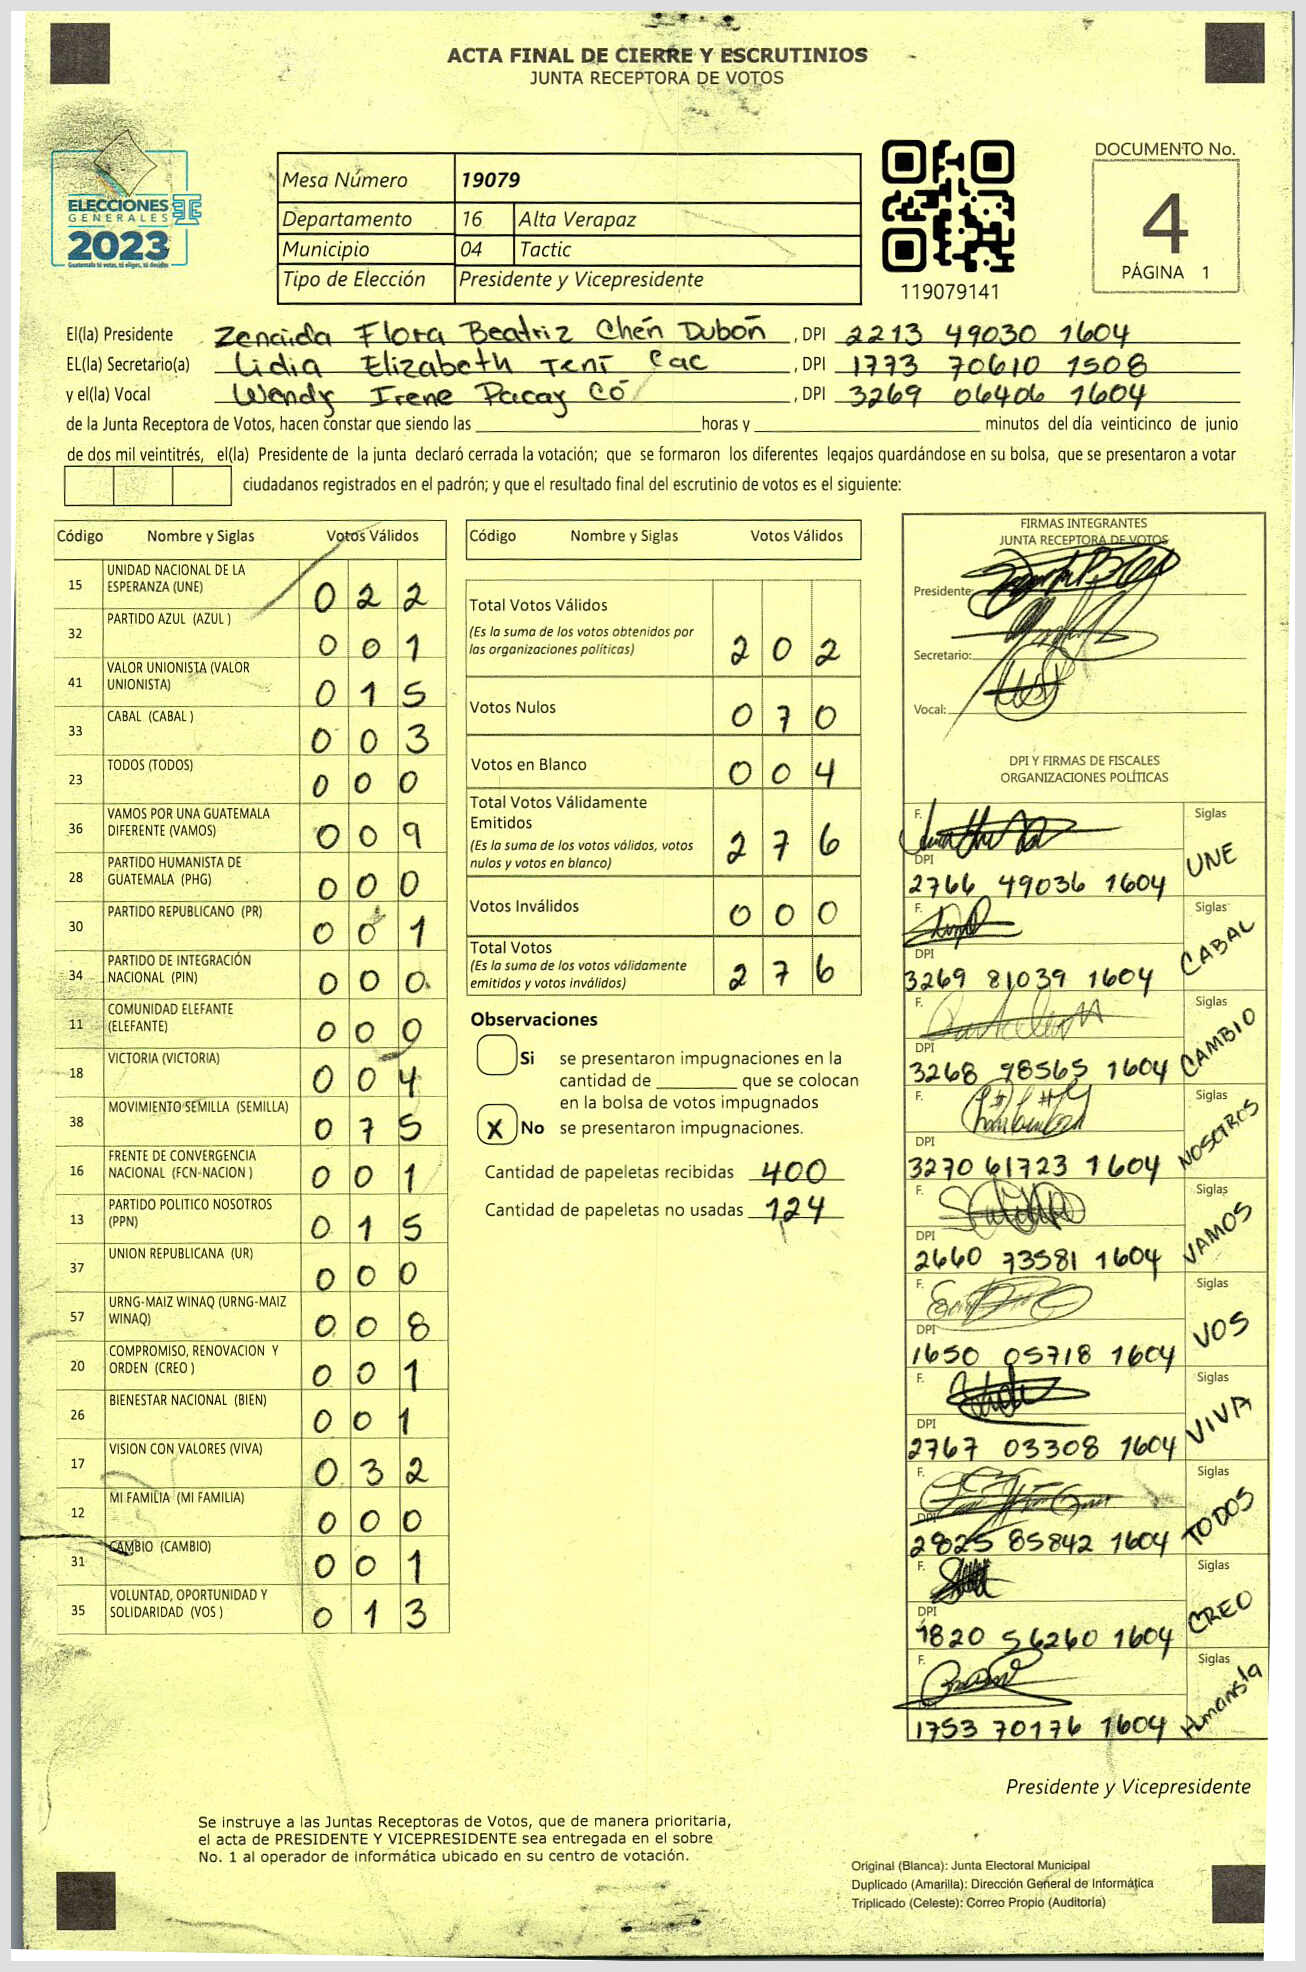 ACTA FINAL DE CIERRE Y ESCRUTINIOS
JUNTA RECEPTORA DE VOTOS
ELECCIONES
GENERALES
2023
Guatemala tú votas, tú eliges, tú decides
Mesa Número 19079
Departamento 16 Alta Verapaz
Municipio 04 Tactic
Tipo de Elección Presidente y Vicepresidente
119079141
DOCUMENTO No.
4
PÁGINA 1
El(la) Presidente Zenaida Flora Beatriz Chén Dubón, DPI 2213 49030 1604
EL(la) Secretario(a) Lidia Elizabeth Tení Cac, DPI 1773 70610 1508
y el(la) Vocal Wendy Irene Pacay Có, DPI 3269 06406 1604
de la Junta Receptora de Votos, hacen constar que siendo las horas y minutos del día veinticinco de junio
de dos mil veintitrés, el(la) Presidente de la junta declaró cerrada la votación; que se formaron los diferentes legajos quardándose en su bolsa, que se presentaron a votar
ciudadanos registrados en el padrón; y que el resultado final del escrutinio de votos es el siguiente:
Código Nombre y Siglas Votos Válidos
15 UNIDAD NACIONAL DE LA ESPERANZA (UNE) 0 2 2
32 PARTIDO AZUL (AZUL ) 0 0 1
41 VALOR UNIONISTA (VALOR UNIONISTA) 0 1 5
33 CABAL (CABAL ) 0 0 3
23 TODOS (TODOS) 0 0 0
36 VAMOS POR UNA GUATEMALA DIFERENTE (VAMOS) 0 0 9
28 PARTIDO HUMANISTA DE GUATEMALA (PHG) 0 0 0
30 PARTIDO REPUBLICANO (PR) 0 0 1
34 PARTIDO DE INTEGRACIÓN NACIONAL (PIN) 0 0 0
11 COMUNIDAD ELEFANTE (ELEFANTE) 0 0 0
18 VICTORIA (VICTORIA) 0 0 4
38 MOVIMIENTO SEMILLA (SEMILLA) 0 7 5
16 FRENTE DE CONVERGENCIA NACIONAL (FCN-NACION ) 0 0 1
13 PARTIDO POLITICO NOSOTROS (PPN) 0 1 5
37 UNION REPUBLICANA (UR) 0 0 0
57 URNG-MAIZ WINAQ (URNG-MAIZ WINAQ) 0 0 8
20 COMPROMISO, RENOVACION Y ORDEN (CREO ) 0 0 1
26 BIENESTAR NACIONAL (BIEN) 0 0 1
17 VISION CON VALORES (VIVA) 0 3 2
12 MI FAMILIA (MI FAMILIA) 0 0 0
31 CAMBIO (CAMBIO) 0 0 1
35 VOLUNTAD, OPORTUNIDAD Y SOLIDARIDAD (VOS ) 0 1 3
Código Nombre y Siglas Votos Válidos
Total Votos Válidos
(Es la suma de los votos obtenidos por
las organizaciones políticas) 2 0 2
Votos Nulos 0 7 0
Votos en Blanco 0 0 4
Total Votos Válidamente
Emitidos
(Es la suma de los votos válidos, votos
nulos y votos en blanco) 2 7 6
Votos Inválidos 0 0 0
Total Votos
(Es la suma de los votos válidamente
emitidos y votos inválidos) 2 7 6
Observaciones
Si se presentaron impugnaciones en la
cantidad de que se colocan
en la bolsa de votos impugnados
X No se presentaron impugnaciones.
Cantidad de papeletas recibidas 400
Cantidad de papeletas no usadas 124
FIRMAS INTEGRANTES
JUNTA RECEPTORA DE VOTOS
Presidente:
Secretario:
Vocal:
DPI Y FIRMAS DE FISCALES
ORGANIZACIONES POLÍTICAS
F. Siglas
DPI
2766 49036 1604 UNE
F. Siglas
DPI
3269 81039 1604 CABAL
F. Siglas
DPI
3268 98565 1604 CAMBIO
F. Siglas
DPI
3270 61723 1604 NOSOTROS
F. Siglas
DPI
2660 73581 1604 VAMOS
F. Siglas
DPI
1650 05718 1604 VOS
F. Siglas
DPI
2767 03308 1604 VIVA
F. Siglas
DPI
2825 85842 1604 TODOS
F. Siglas
DPI
1820 56260 1604 CREO
F. Siglas
1753 70176 1604 Humanista
Presidente y Vicepresidente
Se instruye a las Juntas Receptoras de Votos, que de manera prioritaria,
el acta de PRESIDENTE Y VICEPRESIDENTE sea entregada en el sobre
No. 1 al operador de informática ubicado en su centro de votación.
Original (Blanca): Junta Electoral Municipal
Duplicado (Amarilla): Dirección General de Informática
Triplicado (Celeste): Correo Propio (Auditoría)